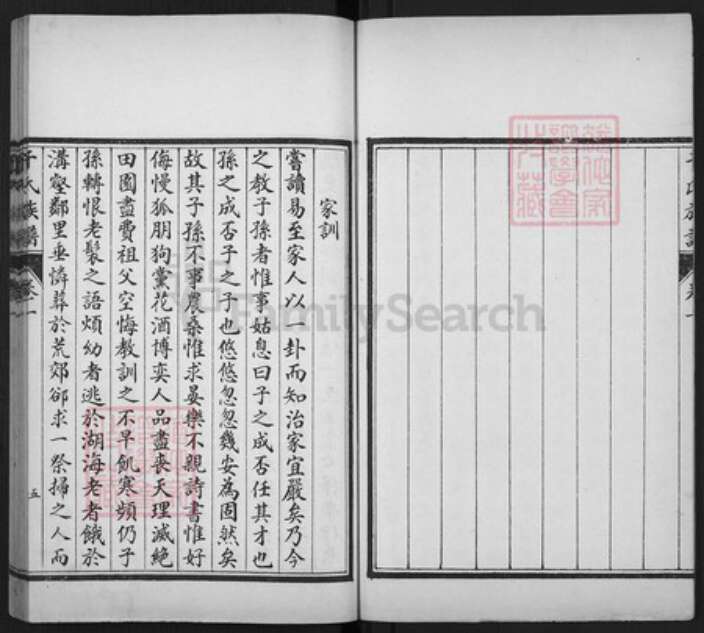 家訓
嘗讀易至家人以一卦而知治家宜嚴矣乃今
之教子孫者惟事姑息曰子之成否任其才也
孫之成否子之子也悠悠忽忽幾安為固然矣
故其子孫不事農桑惟求晏樂不親詩書惟好
侮慢狐朋狗黨花酒博奕人品盡喪天理滅絶
田園盡費祖父空悔教訓之不早飢寒頻仍子
孫轉恨老髮之語煩幼者逃於湖海老者餓於
溝壑鄰里垂憐葬於荒郊卻求一祭掃之人而
氏族譜
卷一
五
FamilySearch